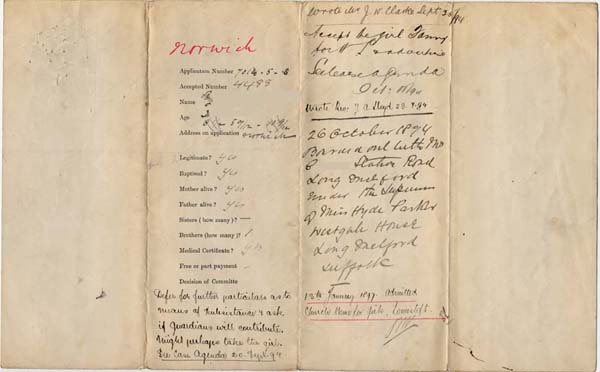 Norwich
Application Number 7014-5-8
Accepted Number 4488
Name
Age
Address on application Norwich
Legitimate? Yes
Baptised? Yes
Mother alive? Yes
Father alive? Yes
Sisters (how many)? —
Brothers (how many)? 1
Medical Certificate? Yes
Free or part payment —
Decision of Committe
Defer for further particulars as to
means of Inheritance & ask
if Guardians will contribute.
Might perhaps take the girl.
See Case Agenda 20 Sept 94
Wrote Mr J. W. Clarke Sept
Accept the girl
for
See Case Agenda
Oct.
Wrote Rev. J. A. 28. 9. 94
26 October 1894
Boarded out with Mrs
Station Road
Long Melford
under the
of Miss Hyde Parker
Westgate House
Long Melford
Suffolk
12th January 1897. Admitted
Church Home for Girls, Lowestoft.